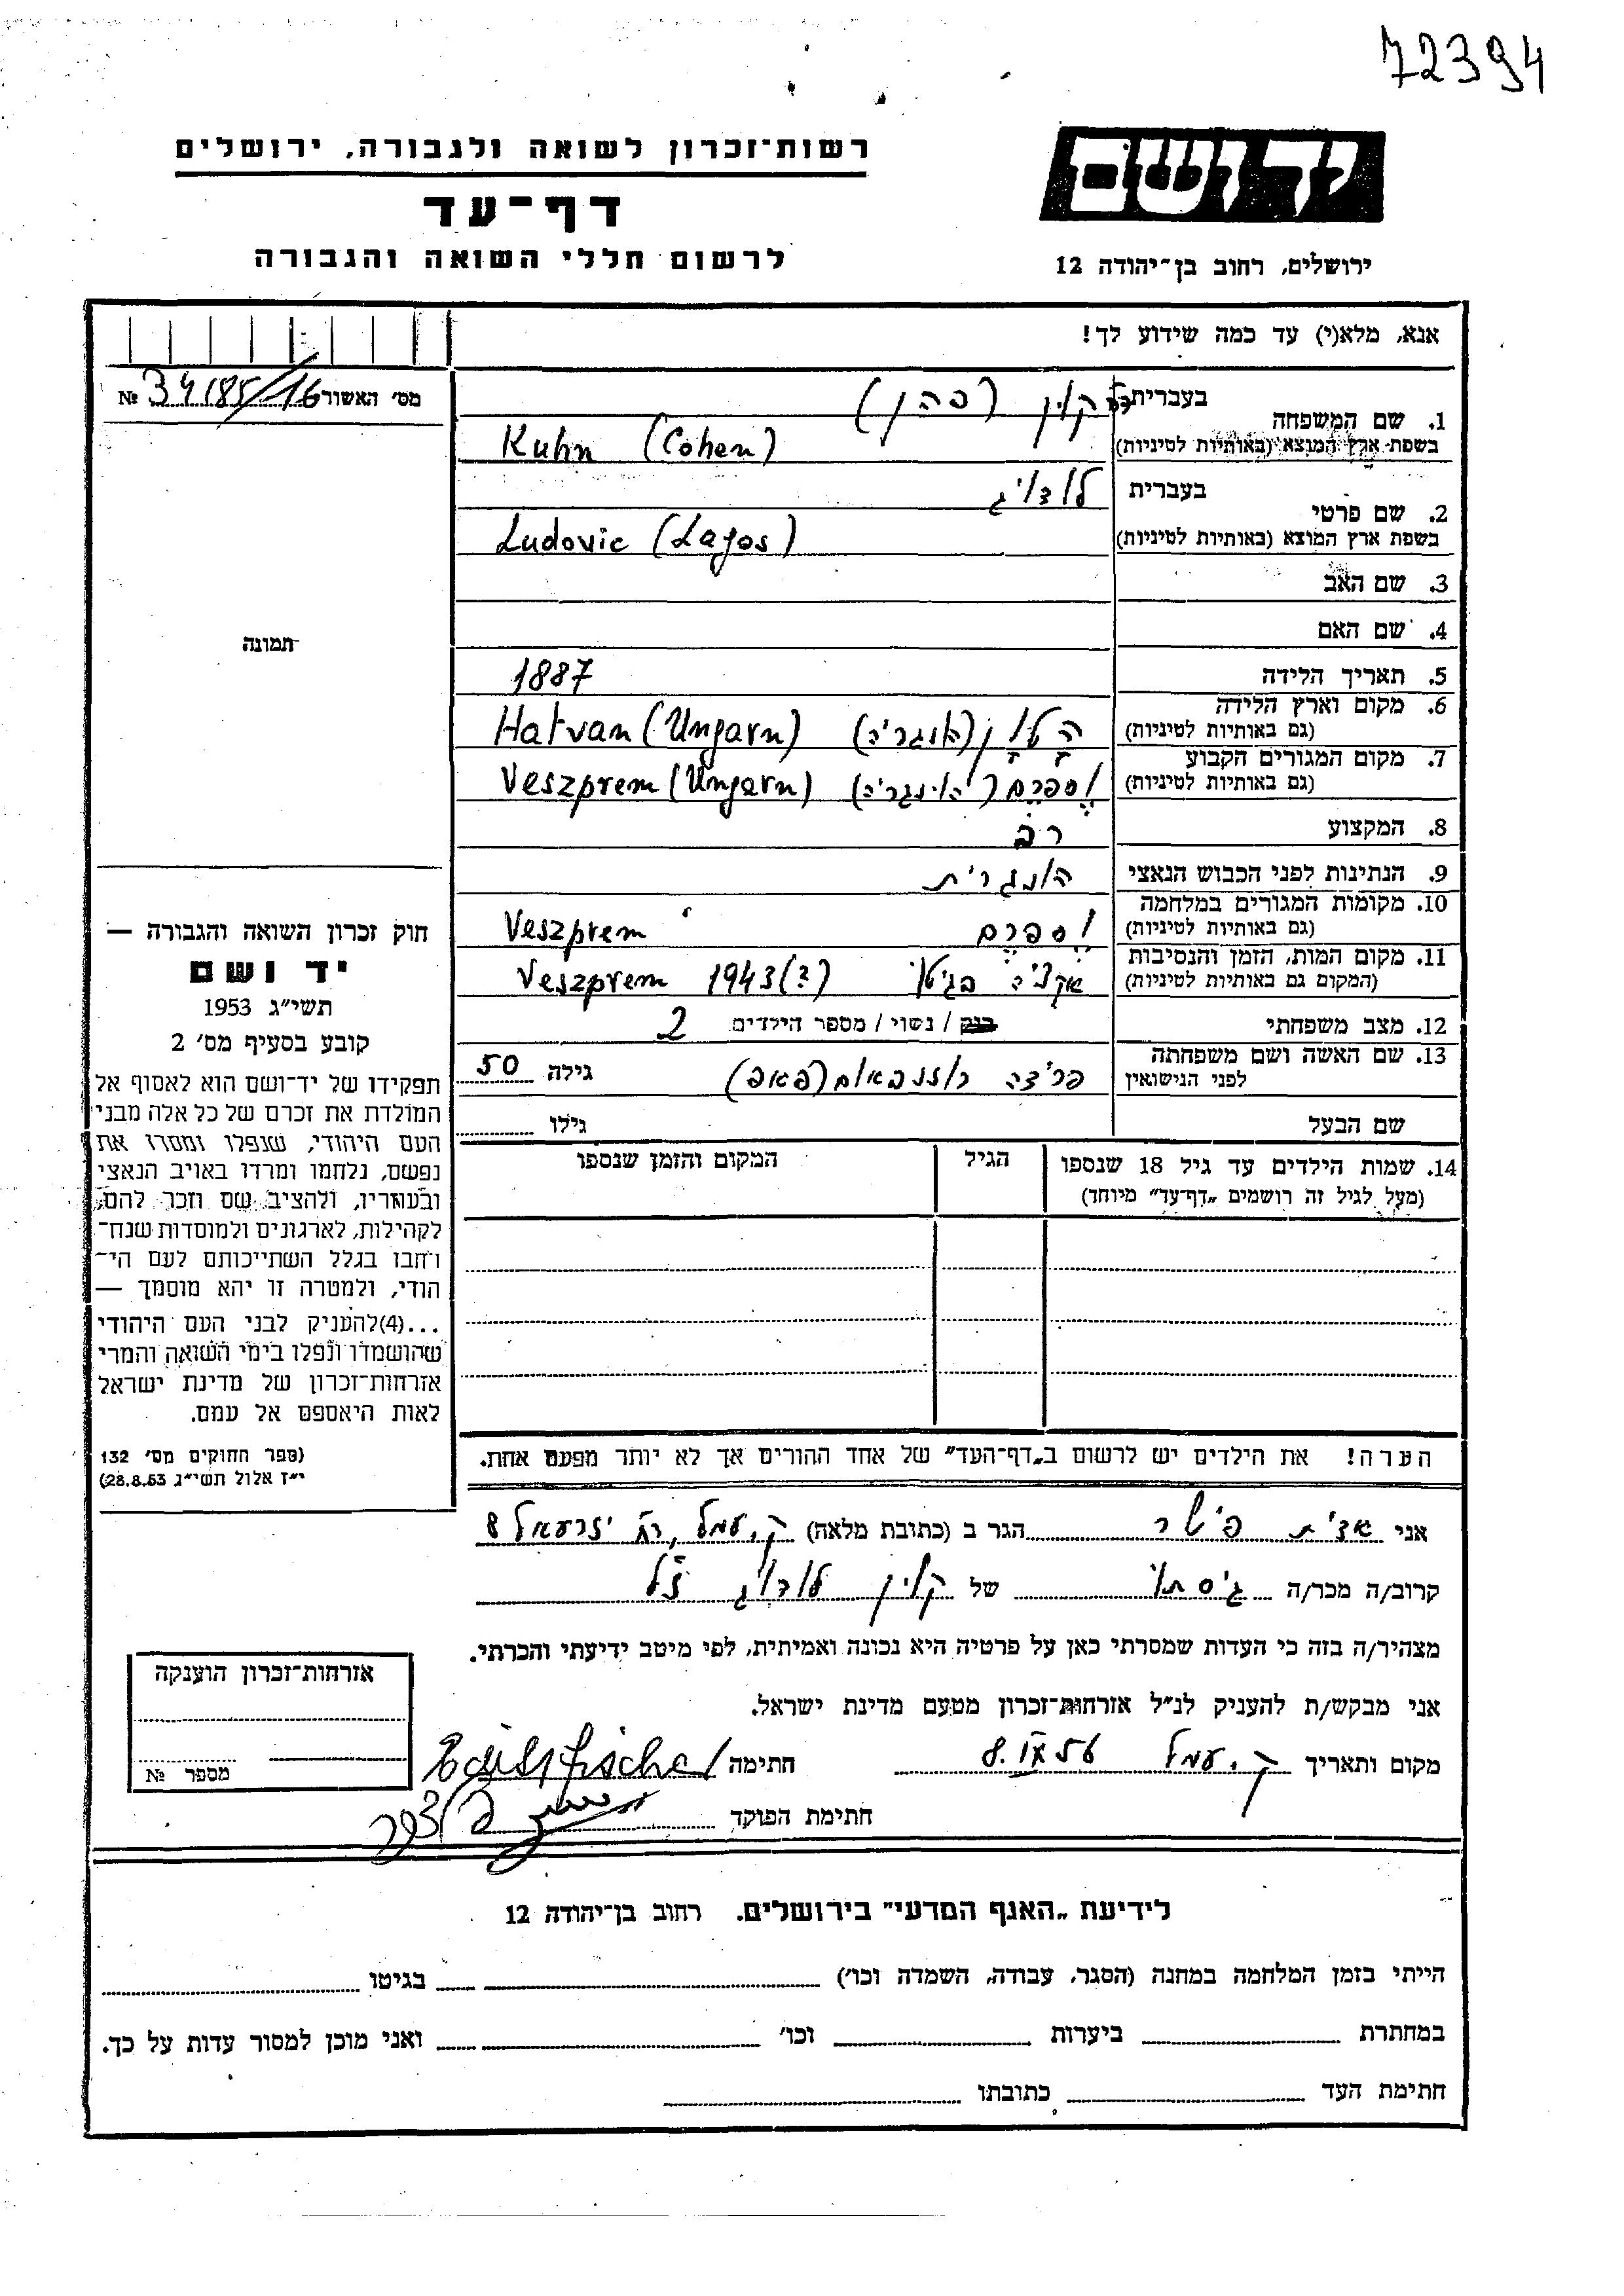 72394
רשות־זכרון לשואה ולגבורה, ירושלים
דף־עד
לרשום חללי השואה והגבורה
יד ושם
ירושלים, רחוב בן־יהודה 12
אנא, מלא(י) עד כמה שידוע לך!
מס׳ האשור 34185/16 №
1. שם המשפחה בעברית קוין (כהן)
בשפת ארץ המוצא (באותיות לטיניות) Kuhn (Cohen)
2. שם פרטי בעברית לודויג
בשפת ארץ המוצא (באותיות לטיניות) Ludovic (Lajos)
3. שם האב
4. שם האם
תמונה
5. תאריך הלידה 1887
6. מקום וארץ הלידה
(גם באותיות לטיניות) הטון (הונגריה) Hatvan (Ungarn)
7. מקום המגורים הקבוע
(גם באותיות לטיניות) וספרם (הונגריה) Veszprem (Ungarn)
8. המקצוע רב
9. הנתינות לפני הכבוש הנאצי הונגרית
10. מקומות המגורים במלחמה
(גם באותיות לטיניות) וספרם Veszprem
11. מקום המות, הזמן והנסיבות
(המקום גם באותיות לטיניות) אקציה בגיטו Veszprem 1943 (?)
12. מצב משפחתי רווק / נשוי / מספר הילדים 2
13. שם האשה ושם משפחתה
לפני הנישואין פרידה רוזנבאום (פאפ) גילה 50
שם הבעל גילו
14. שמות הילדים עד גיל 18 שנספו
(מעל לגיל זה רושמים „דף־עד״ מיוחד)
הגיל
המקום והזמן שנספו
חוק זכרון השואה והגבורה —
יד ושם
תשי״ג 1953
קובע בסעיף מס׳ 2
תפקידו של יד־ושם הוא לאסוף אל
המולדת את זכרם של כל אלה מבני
העם היהודי, שנפלו ומסרו את
נפשם, נלחמו ומרדו באויב הנאצי
ובעוזריו, ולהציב שם וזכר להם,
לקהילות, לארגונים ולמוסדות שנח־
רחבו בגלל השתייכותם לעם הי־
הודי, ולמטרה זו יהא מוסמך —
...(4) להעניק לבני העם היהודי
שהושמדו ונפלו בימי השואה והמרי
אזרחות־זכרון של מדינת ישראל
לאות היאספם אל עמם.
(ספר החוקים מס׳ 132
י״ז אלול תשי״ג 28.8.53)
הערה! את הילדים יש לרשום ב„דף־העד״ של אחד ההורים אך לא יותר מפעם אחת.
אני אדית פישר הגר ב (כתובת מלאה) ק. עמל, רח׳ יזרעאל 8
קרוב/ה מכר/ה גיסתו של קוין לודויג ז״ל
מצהיר/ה בזה כי העדות שמסרתי כאן על פרטיה היא נכונה ואמיתית, לפי מיטב ידיעתי והכרתי.
אני מבקש/ת להעניק לנ״ל אזרחות־זכרון מטעם מדינת ישראל.
מקום ותאריך ק. עמל 8.IX.56 חתימה Edith Fischer
חתימת הפוקד
אזרחות־זכרון הוענקה
מספר №
לידיעת „האגף המדעי״ בירושלים. רחוב בן־יהודה 12
הייתי בזמן המלחמה במחנה (הסגר, עבודה, השמדה וכו׳) בגיטו
במחתרת ביערות וכו׳ ואני מוכן למסור עדות על כך.
חתימת העד כתובתו